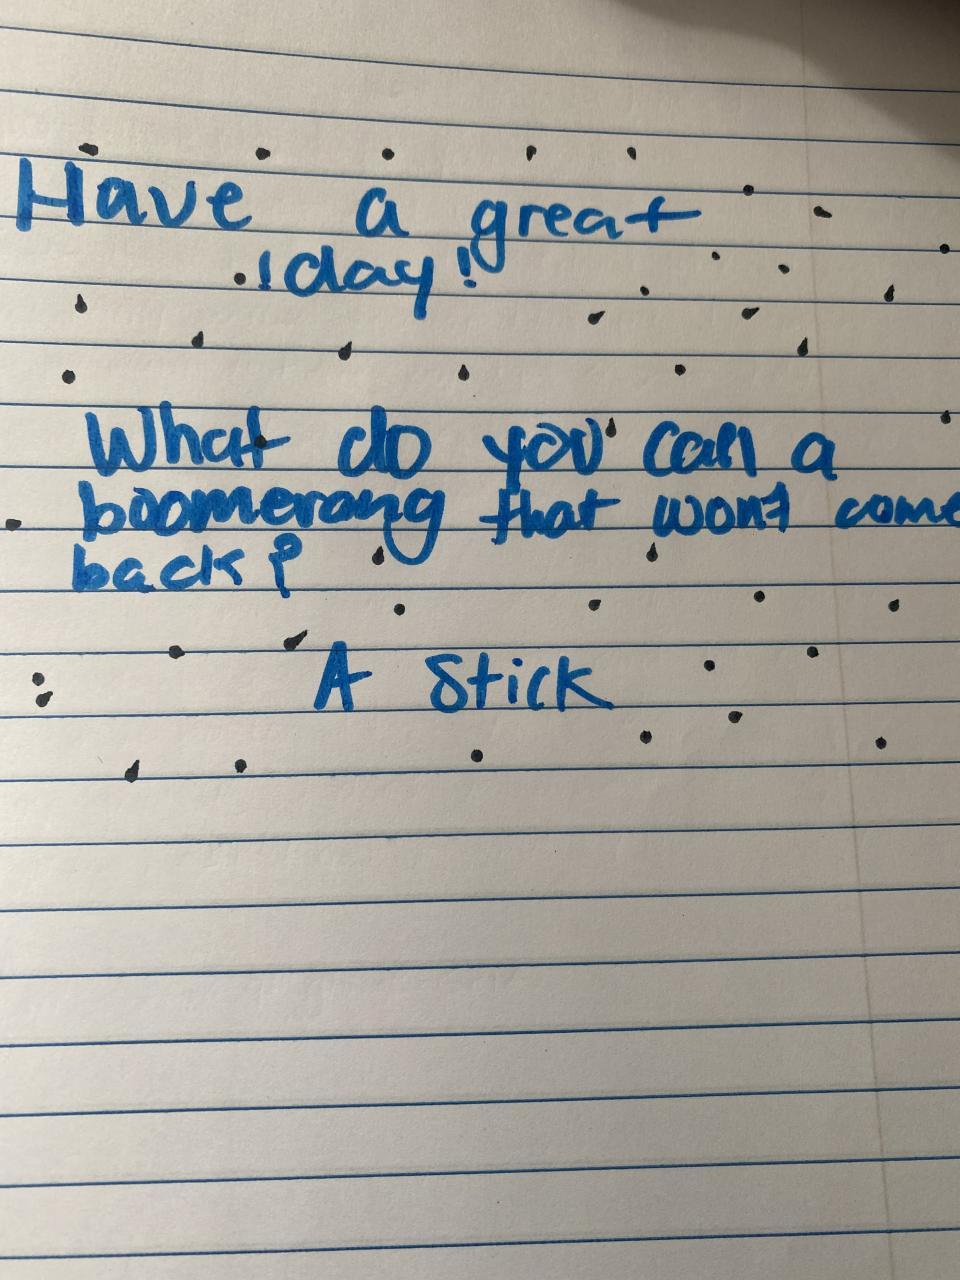 Have a great
!day!
What do you call a
boomerang that wont come
back?
A Stick